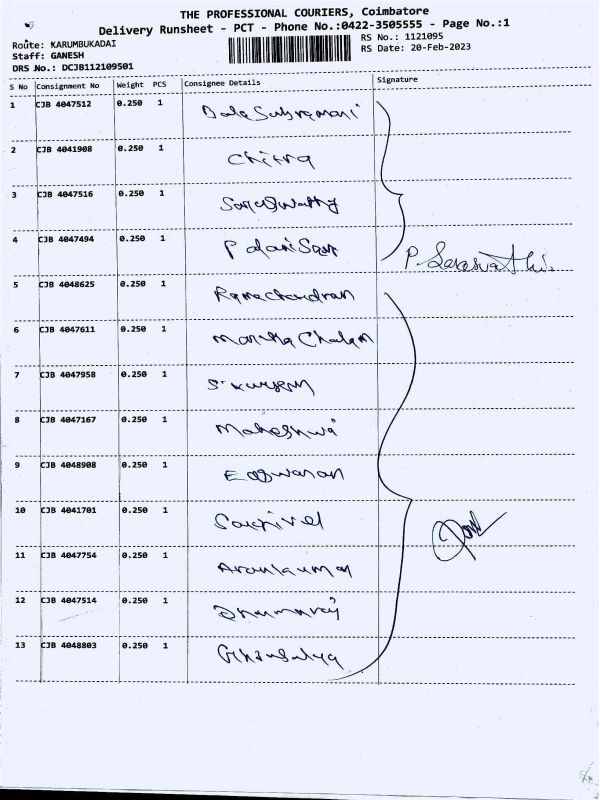 THE PROFESSIONAL COURIERS, Coimbatore
Delivery Runsheet - PCT - Phone No.:0422-3505555 - Page No.:1
Route: KARUMBUKADAI
Staff: GANESH
DRS No.: DCJB112109501
RS No.: 1121095
RS Date: 20-Feb-2023
S No Consignment No Weight PCS Consignee Details Signature
1 CJB 4047512 0.250 1 Bala Subramani
2 CJB 4041908 0.250 1 Chitra
3 CJB 4047516 0.250 1 Saraswathy
4 CJB 4047494 0.250 1 Palanisam P. Saraswathi.
5 CJB 4048625 0.250 1 Ramachandran
6 CJB 4047611 0.250 1 Chalam
7 CJB 4047958 0.250 1
8 CJB 4047167 0.250 1 Maheshwi
9 CJB 4048908 0.250 1 Eswaran
10 CJB 4041701 0.250 1 Sakrivel
11 CJB 4047754 0.250 1 Arunkumar
12 CJB 4047514 0.250 1 Dharmaraj
13 CJB 4048803 0.250 1